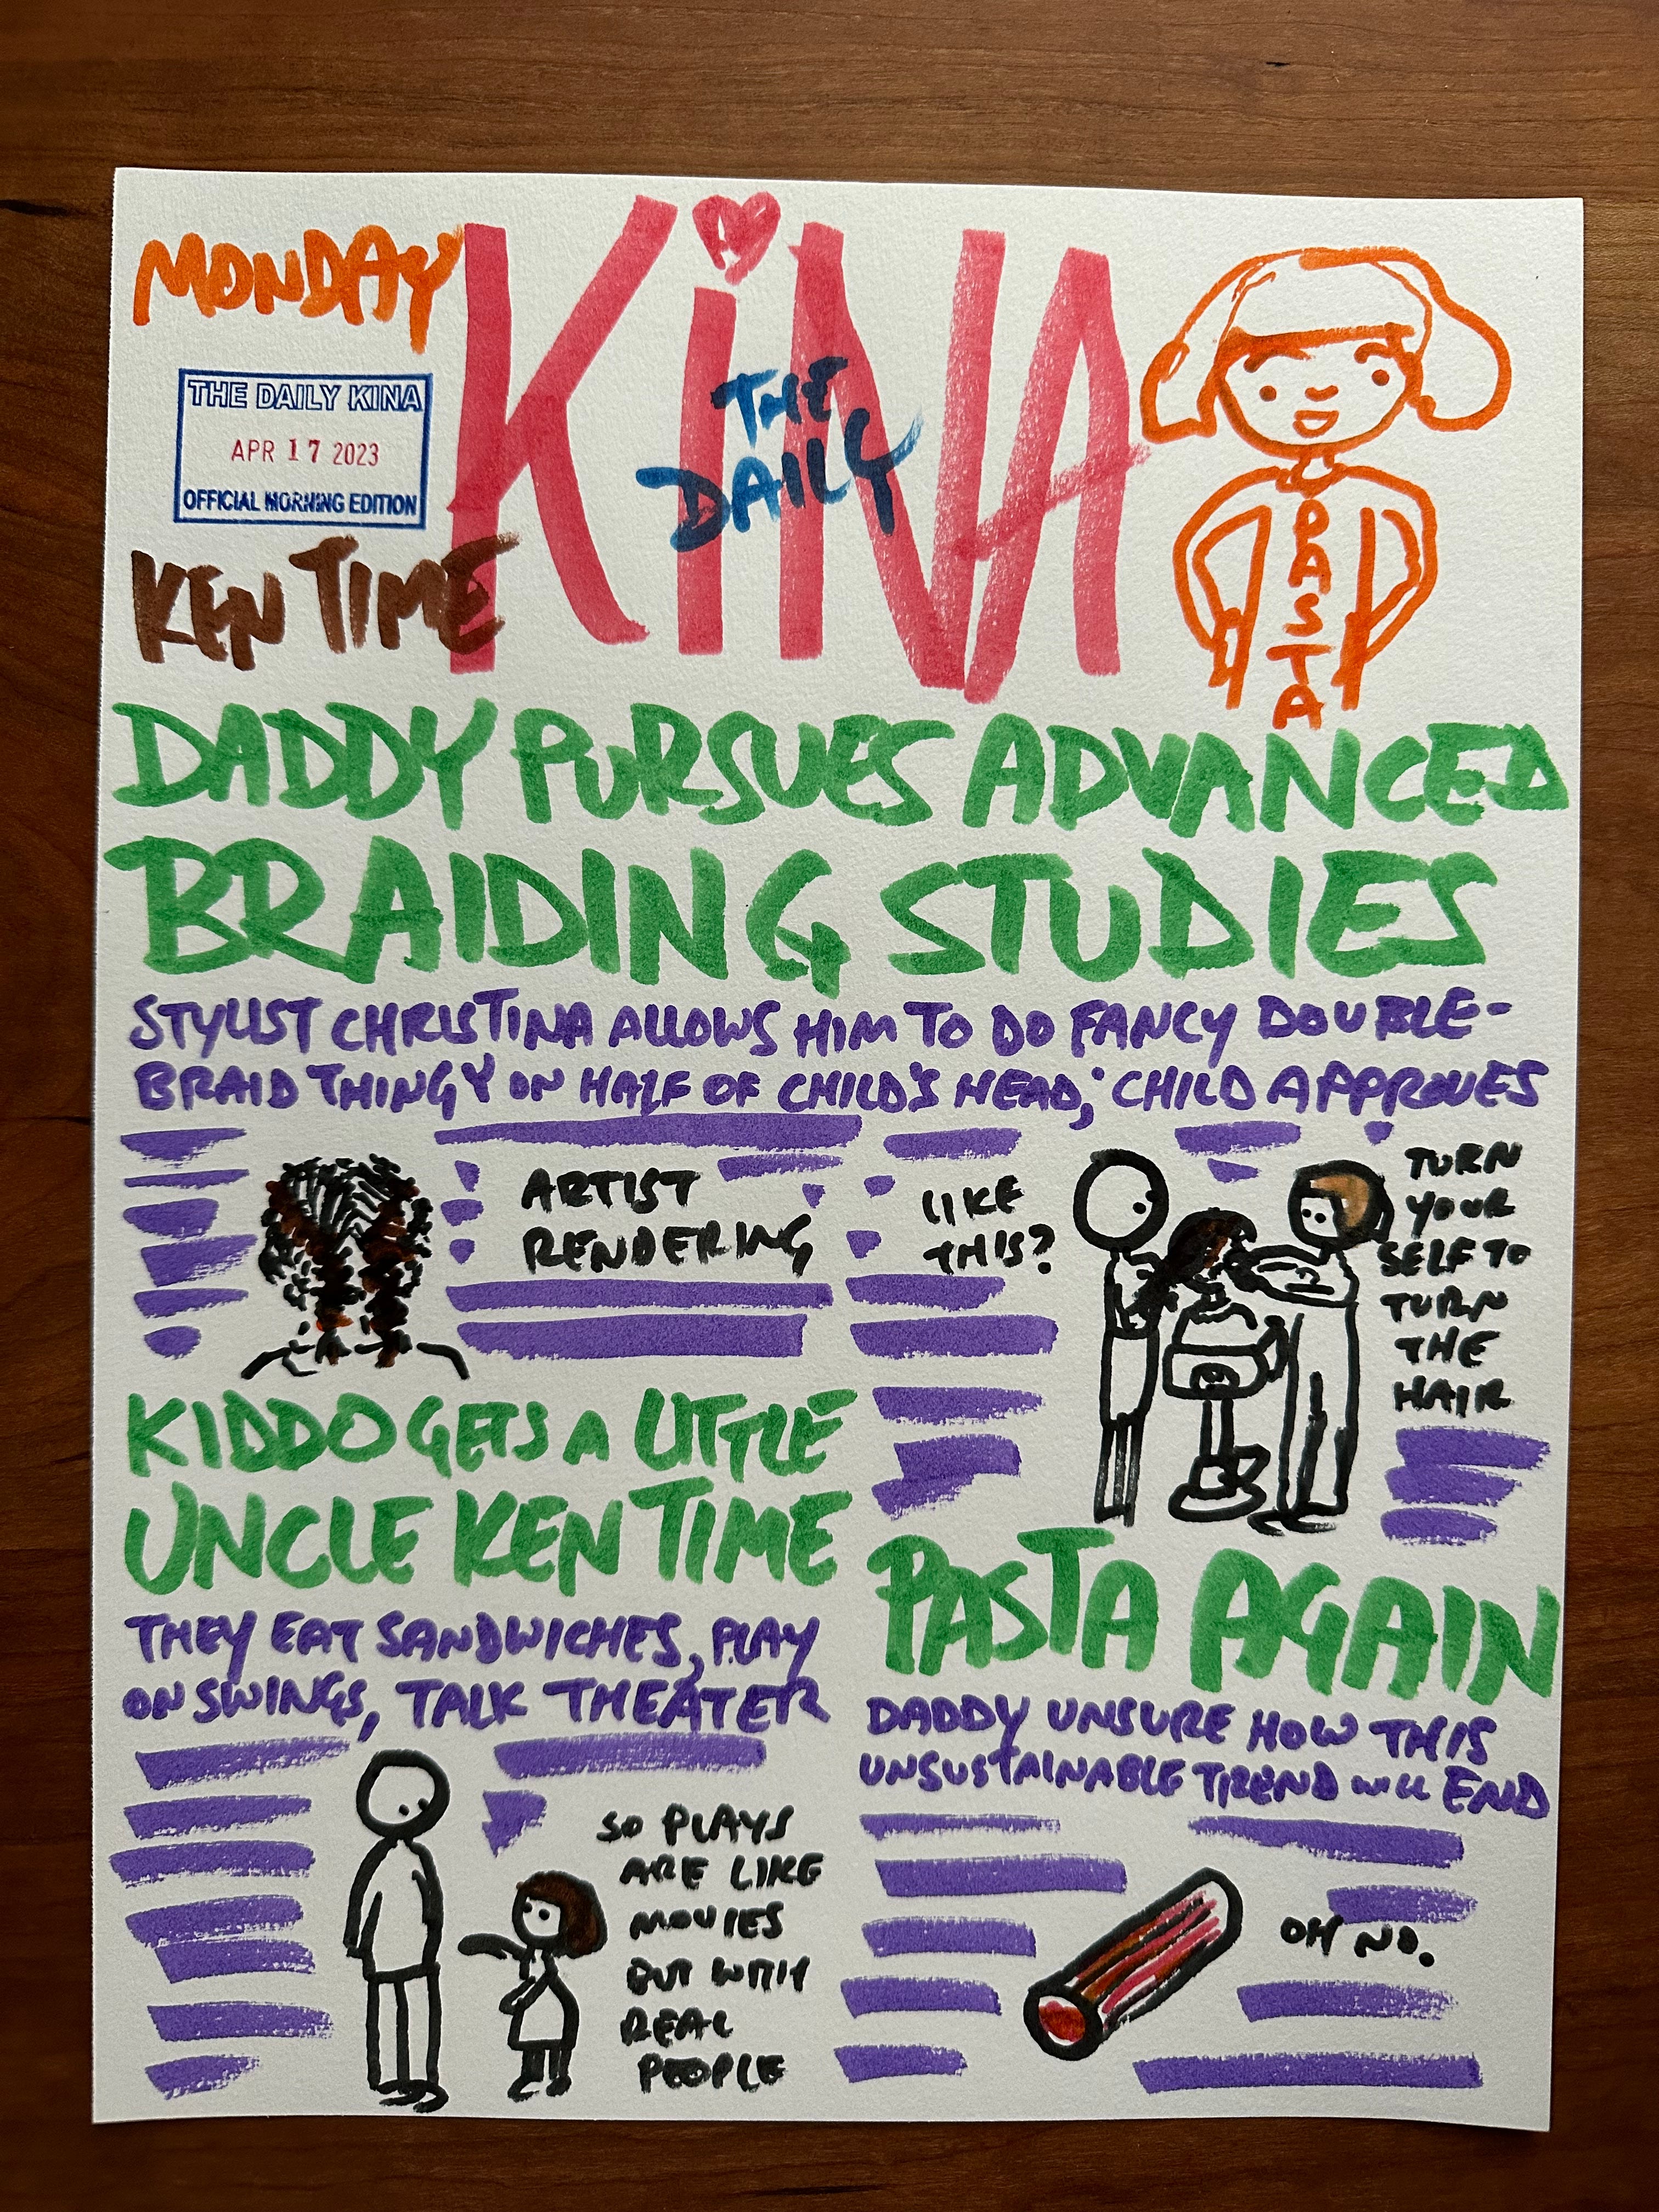 MONDAY
THE DAILY KINA
APR 17 2023
OFFICIAL MORNING EDITION
KEN TIME
THE
DAILY
KiNA
PASTA
DADDY PURSUES ADVANCED
BRAIDING STUDIES
STYLIST CHRISTINA ALLOWS HIM TO DO FANCY DOUBLE-
BRAID THINGY ON HALF OF CHILD'S HEAD; CHILD APPROVES
ARTIST
RENDERING
LIKE
THIS?
TURN
YOUR
SELF TO
TURN
THE
HAIR
KIDDO GETS A LITTLE
UNCLE KEN TIME
THEY EAT SANDWICHES, PLAY
ON SWINGS, TALK THEATER
SO PLAYS
ARE LIKE
MOVIES
BUT WITH
REAL
PEOPLE
PASTA AGAIN
DADDY UNSURE HOW THIS
UNSUSTAINABLE TREND WILL END
OH NO.